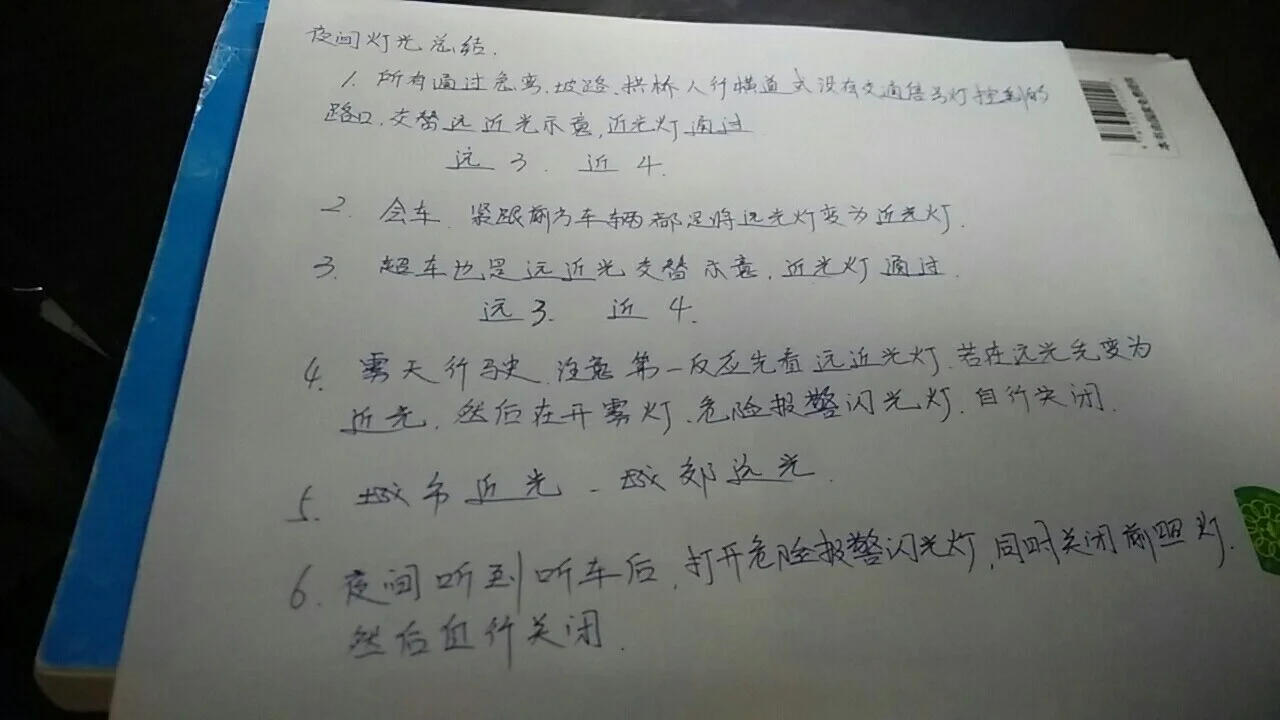 夜间灯光总结.
1. 所有通过急弯.坡路.拱桥人行横道或没有交通信号灯控制的
路口.交替远近光示意,近光灯通过
远 3. 近 4.
2. 会车. 紧跟前方车辆都是将远光灯变为近光灯.
3. 超车也是远近光交替示意,近光灯通过.
远 3. 近 4.
4. 雾天行驶.注意第一反应先看远近光灯.若在远光先变为
近光.然后在开雾灯.危险报警闪光灯.自行关闭.
5. 城市近光 - 城郊远光.
6. 夜间听到听车后,打开危险报警闪光灯,同时关闭前照灯.
然后自行关闭.